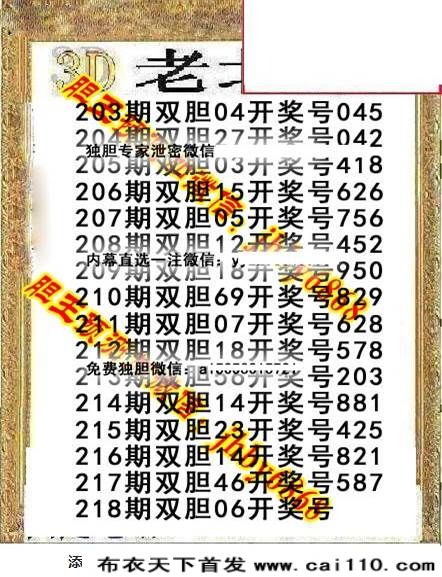 3D 老
203期双胆04开奖号045
204期双胆27开奖号042
独胆专家泄密微信
205期双胆03开奖号418
206期双胆15开奖号626
207期双胆05开奖号756
208期双胆12开奖号452
内幕直选一注微信：y
209期双胆18开奖号950
210期双胆69开奖号829
211期双胆07开奖号628
212期双胆18开奖号578
免费独胆微信：
213期双胆58开奖号203
214期双胆14开奖号881
215期双胆23开奖号425
216期双胆14开奖号821
217期双胆46开奖号587
218期双胆06开奖号
胆王
胆王
jhby6868
添
布衣天下首发 www.cai110.com